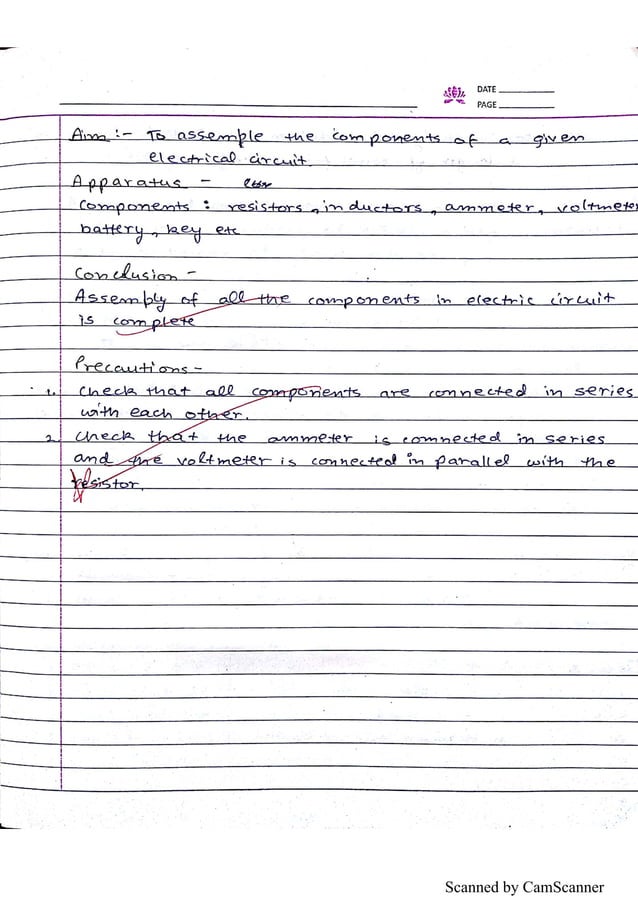 DATE
PAGE
Aim :- To assemble the components of a given
electrical circuit.
Apparatus -
components : resistors, inductors, ammeter, voltmeter
battery, key etc
Conclusion -
Assembly of all the components in electric circuit
is complete
Precautions -
1. check that all components are connected in series
with each other.
2. check that the ammeter is connected in series
and the voltmeter is connected in parallel with the
resistor.
Scanned by CamScanner